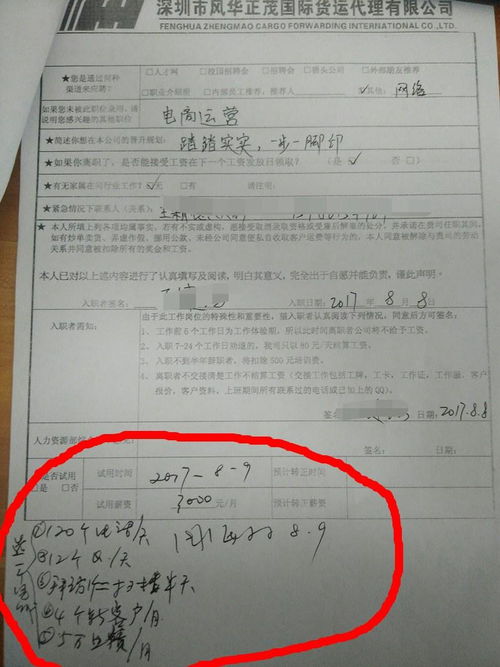 深圳市风华正茂国际货运代理有限公司
FENGHUA ZHENGMAO CARGO FORWARDING INTERNATIONAL CO.,LTD.
★您是通过何种渠道来应聘? □人才网 □校园招聘会 □招聘会 □猎头公司 □外部朋友推荐
□职业介绍所 □内部员工推荐,推荐人 其他: 网络
如果您未被此职位录用,请说明您感兴趣的其他职位 电商运营
★简述你想在本公司的晋升规划: 踏踏实实,一步一脚印
★如果你离职了,是否能接受工资在下一个工资发放日领取? (是 ✓ 否 □)
★有无家属在同行业工作? ✓无 □有 请注明:
★紧急情况下联系人(关系):
★ 本人所填上列各项均属事实,若有不实或虚构,愿接受取消录取资格或受雇后解雇的处分,并承诺在贵司任职其间,
如有炒单卖货、弄虚作假、挪用公款、未经公司同意便私自收取客户运费等行为的,本人同意被解除与贵司的劳动
关系并同意被扣除所有的奖金和工资。
本人已对以上述内容进行了认真填写及阅读,明白其意义,完全出于自愿并能负责,谨此声明。
入职者签名: 入职日期: 2017 年 8 月 8 日
入职者需知:
由于此工作岗位的特殊性和重要性,望入职者认真阅读下列情况,同意后方可签名:
1、工作前6个工作日为工作体验期,所以此时间离职者公司将不给予工资。
2、入职7-24个工作日劝退的,我司只以80元/天结算工资。
3、入职不到半年辞职者,将扣除500元培训费。
4、离职者不交接清楚工作不结算工资(交接工作包括工牌、工卡、工作证、工作服、客户
报价,客户资料,上班期间所有联系过的电话或已加上的QQ)。
签名 日期: 2017.8.8
人力资源部 签名: 日期:
是否试用 □是 □否
试用时间 2017-8-9 预计转正时间
试用薪资 3000 元/月 预计转正薪资
①120个电话/天
8.9
②12个Q/天
④4个新客户/月
⑤5万业绩/月